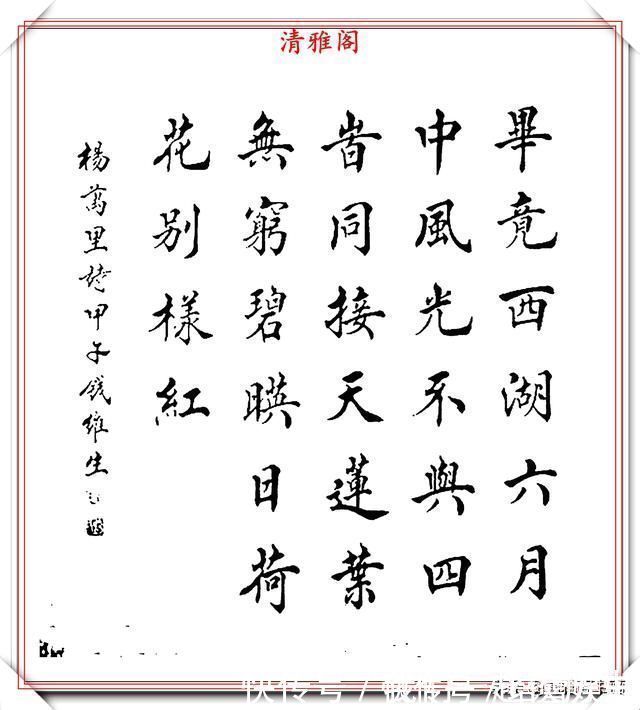 清雅阁
畢竟西湖六月
中風光不與四
旹同接天蓮葉
無窮碧暎日荷
花别樣紅
楊萬里詩甲午錢維生
快传号/